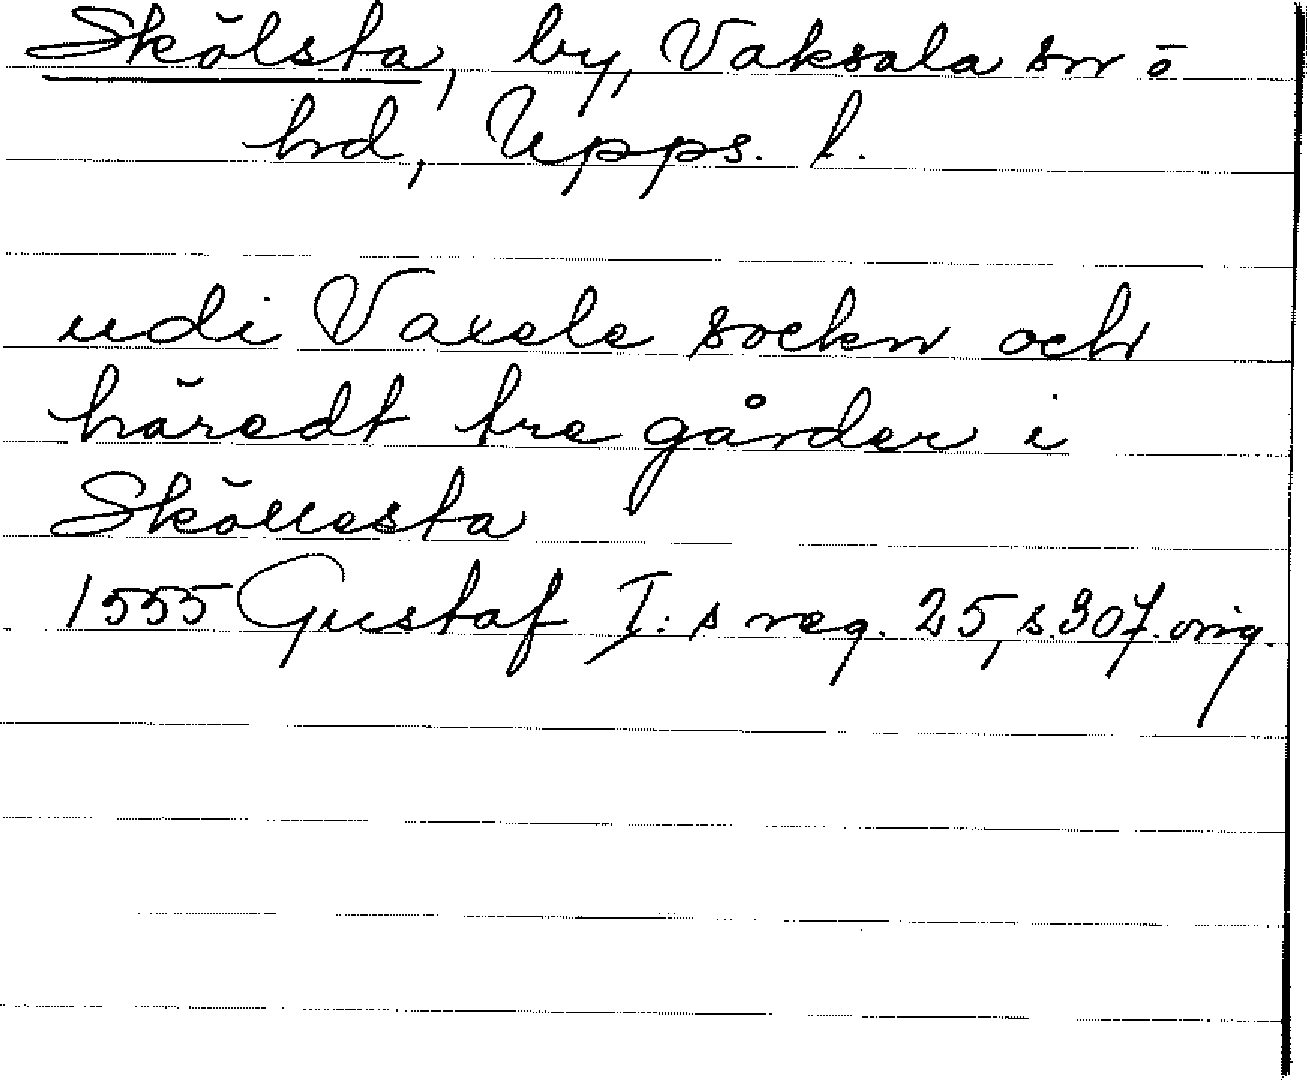 Skölsta, by, Vaksala sn o
hd, Upps. l.
udi Vaxele sockn och
häredt tre gårder i
Sköllesta
1555 Gustaf I:s reg. 25, s. 307. orig.